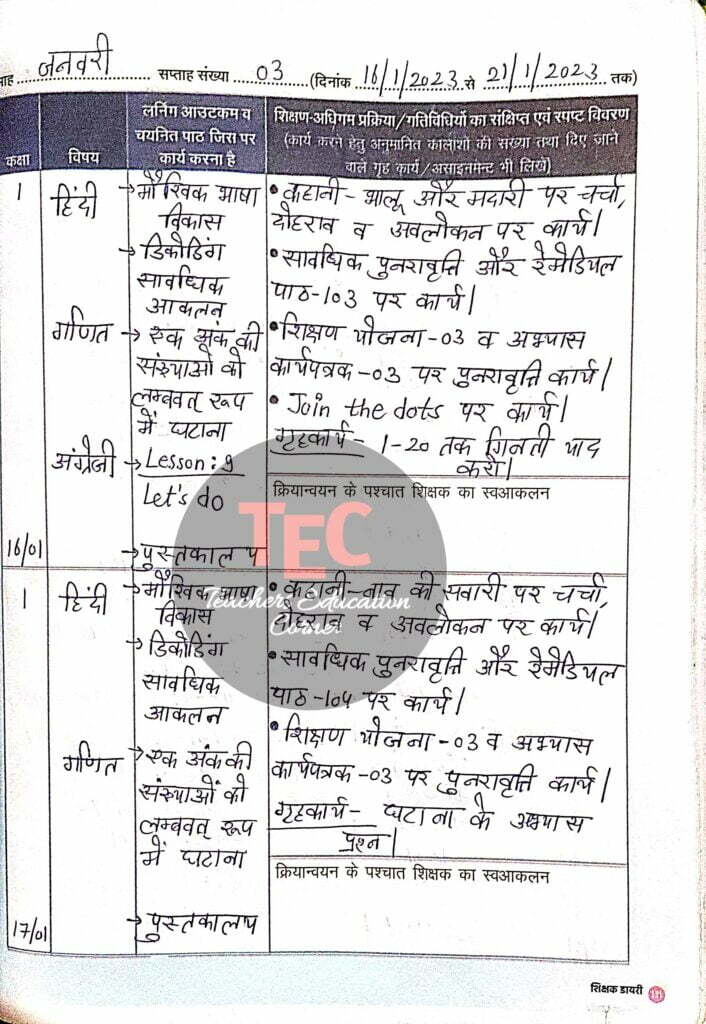 माह जनवरी सप्ताह संख्या 03 (दिनांक 16/1/2023 से 21/1/2023 तक)
कक्षा
विषय
लर्निग आउटकम व
चयनित पाठ जिस पर
कार्य करना है
शिक्षण-अधिगम प्रक्रिया/गतिविधियों का संक्षिप्त एवं स्पष्ट विवरण
(कार्य करने हेतु अनुमानित कालांशों की संख्या तथा दिए जाने
वाले गृह कार्य/असाइनमेन्ट भी लिखें)
1
हिंदी
→ मौखिक भाषा
विकास
→ डिकोडिंग
सावधिक
आकलन
गणित
→ एक अंक की
संख्याओं को
लम्बवत् रूप
में घटाना
अंग्रेजी
→ Lesson: 9
Let's do
→ पुस्तकालय
16/01
• कहानी - भालू और मदारी पर चर्चा,
दोहराव व अवलोकन पर कार्य।
• सावधिक पुनरावृत्ति और रेमेडियल
पाठ-103 पर कार्य।
• शिक्षण योजना-03 व अभ्यास
कार्यपत्रक-03 पर पुनरावृत्ति कार्य।
• Join the dots पर कार्य।
गृहकार्य - 1-20 तक गिनती याद
करो।
क्रियान्वयन के पश्चात शिक्षक का स्वआकलन
TEC
Teachers Education
Corner
1
हिंदी
→ मौखिक भाषा
विकास
→ डिकोडिंग
सावधिक
आकलन
गणित
→ एक अंक की
संख्याओं को
लम्बवत् रूप
में घटाना
→ पुस्तकालय
17/01
• कहानी - नाव की सवारी पर चर्चा,
दोहराव व अवलोकन पर कार्य।
• सावधिक पुनरावृत्ति और रेमेडियल
पाठ-104 पर कार्य।
• शिक्षण योजना-03 व अभ्यास
कार्यपत्रक-03 पर पुनरावृत्ति कार्य।
गृहकार्य - घटाना के अभ्यास
प्रश्न।
क्रियान्वयन के पश्चात शिक्षक का स्वआकलन
शिक्षक डायरी